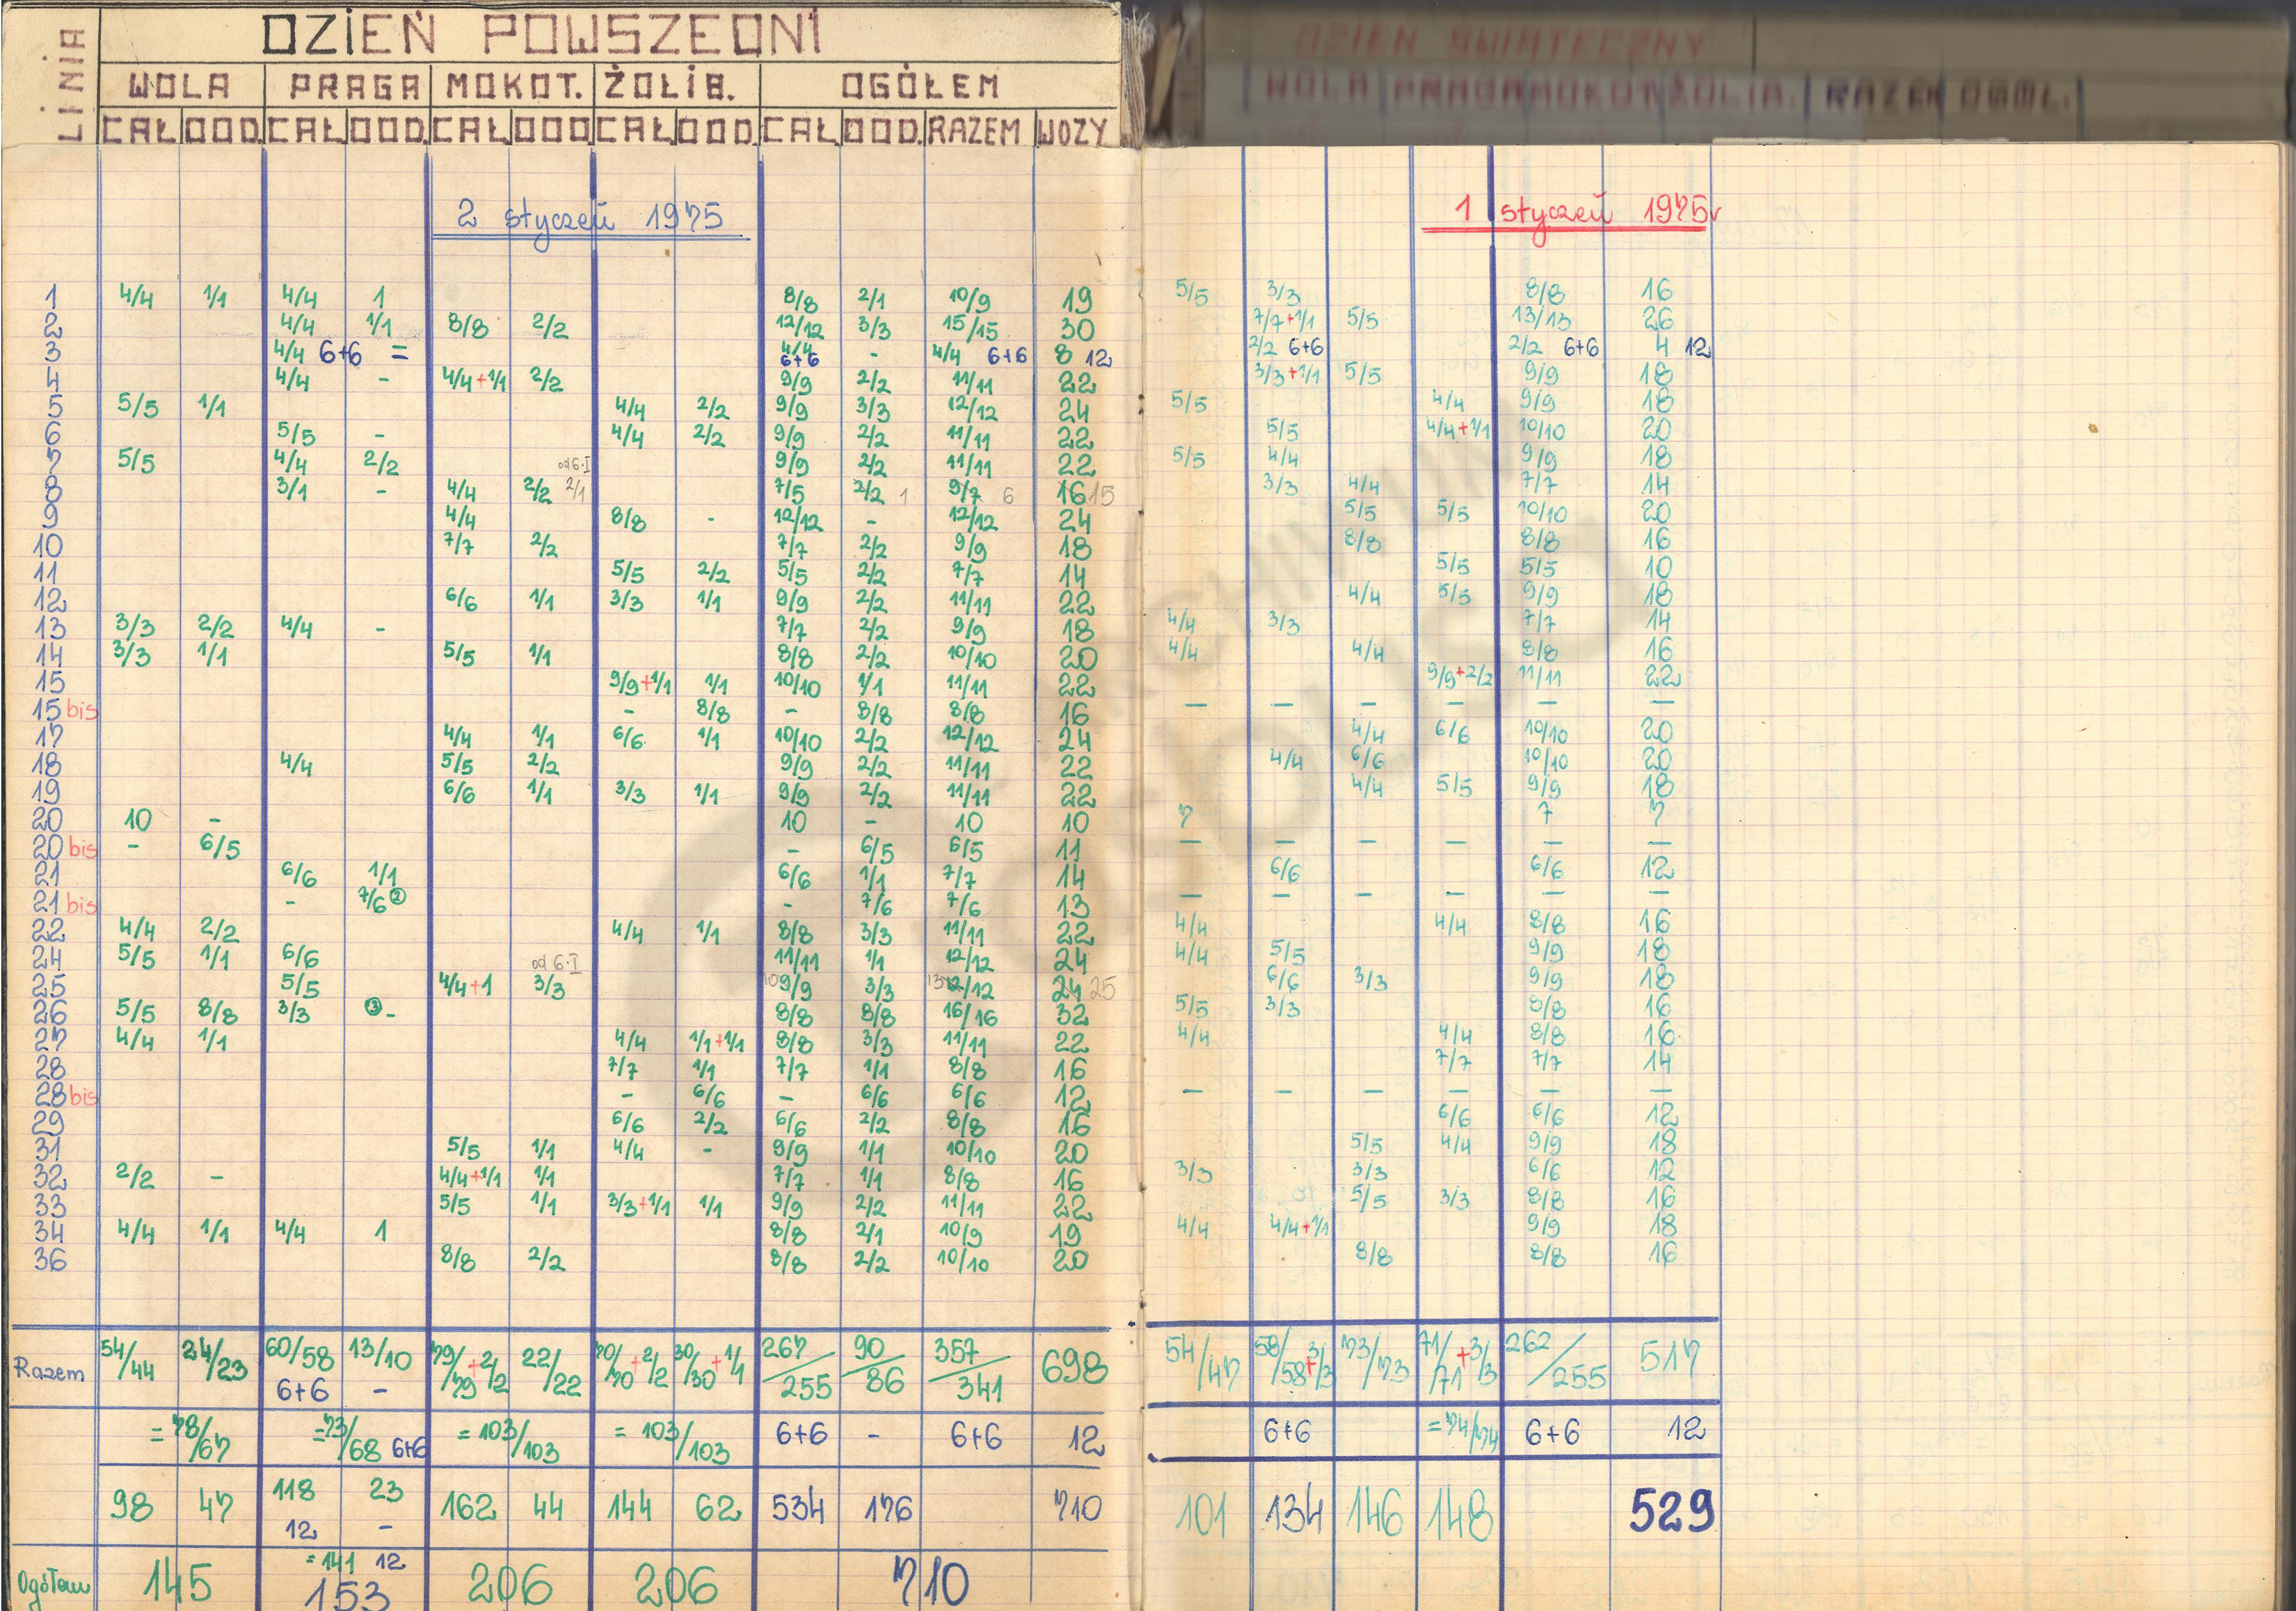 LINIA
DZIEŃ POWSZEDNI
WOLA PRAGA MOKOT. ŻOLIB. OGÓŁEM
CAŁ DOD. CAŁ DOD. CAŁ DOD CAŁ DOD. CAŁ DOD. RAZEM WOZY
2 styczeń 1975
1 4/4 1/1 4/4 1 8/8 2/1 10/9 19
2 4/4 1/1 8/8 2/2 12/12 3/3 15/15 30
3 4/4 6+6 = 4/4 6+6 - 4/4 6+6 8 12
4 4/4 - 4/4+1/1 2/2 9/9 2/2 11/11 22
5 5/5 1/1 4/4 2/2 9/9 3/3 12/12 24
6 5/5 - 4/4 2/2 9/9 2/2 11/11 22
7 5/5 4/4 2/2 od 6.I 9/9 2/2 11/11 22
8 3/1 - 4/4 2/2 2/1 7/5 2/2 1 9/7 6 16 15
9 4/4 8/8 - 12/12 - 12/12 24
10 7/7 2/2 7/7 2/2 9/9 18
11 5/5 2/2 5/5 2/2 7/7 14
12 6/6 1/1 3/3 1/1 9/9 2/2 11/11 22
13 3/3 2/2 4/4 - 7/7 2/2 9/9 18
14 3/3 1/1 5/5 1/1 8/8 2/2 10/10 20
15 9/9+1/1 1/1 10/10 1/1 11/11 22
15 bis - 8/8 - 8/8 8/8 16
17 4/4 1/1 6/6 1/1 10/10 2/2 12/12 24
18 4/4 5/5 2/2 9/9 2/2 11/11 22
19 6/6 1/1 3/3 1/1 9/9 2/2 11/11 22
20 10 - 10 - 10 10
20 bis - 6/5 - 6/5 6/5 11
21 6/6 1/1 6/6 1/1 7/7 14
21 bis - 7/6 ② - 7/6 7/6 13
22 4/4 2/2 4/4 1/1 8/8 3/3 11/11 22
24 5/5 1/1 6/6 od 6.I 11/11 1/1 12/12 24
25 5/5 4/4+1 3/3 10 9/9 3/3 13 12/12 24 25
26 5/5 8/8 3/3 ③ - 8/8 8/8 16/16 32
27 4/4 1/1 4/4 1/1+1/1 8/8 3/3 11/11 22
28 7/7 1/1 7/7 1/1 8/8 16
28 bis - 6/6 - 6/6 6/6 12
29 6/6 2/2 6/6 2/2 8/8 16
31 5/5 1/1 4/4 - 9/9 1/1 10/10 20
32 2/2 - 4/4+1/1 1/1 7/7 1/1 8/8 16
33 5/5 1/1 3/3+1/1 1/1 9/9 2/2 11/11 22
34 4/4 1/1 4/4 1 8/8 2/1 10/9 19
36 8/8 2/2 8/8 2/2 10/10 20
Razem 54/44 24/23 60/58 13/10 79/79+2/2 22/22 70/70+2/2 30/30+1/1 267/255 90/86 357/341 698
6+6 -
=78/67 =73/68 6+6 =103/103 =103/103 6+6 - 6+6 12
98 47 118 23 162 44 144 62 534 176 710
12 -
=141 12
Ogółem 145 153 206 206 710
DZIEŃ ŚWIĄTECZNY
WOLA PRAGA MOKOT ŻOLIB. RAZEM OGÓŁ.
1 styczeń 1975r
5/5 3/3 8/8 16
7/7+1/1 5/5 13/13 26
2/2 6+6 2/2 6+6 4 12
3/3+1/1 5/5 9/9 18
5/5 4/4 9/9 18
5/5 4/4+1/1 10/10 20
5/5 4/4 9/9 18
3/3 4/4 7/7 14
5/5 5/5 10/10 20
8/8 8/8 16
5/5 5/5 10
4/4 5/5 9/9 18
4/4 3/3 7/7 14
4/4 4/4 8/8 16
9/9+2/2 11/11 22
— — — — — —
4/4 6/6 10/10 20
4/4 6/6 10/10 20
4/4 5/5 9/9 18
7 7 7
— — — — — —
6/6 6/6 12
— — — — — —
4/4 4/4 8/8 16
4/4 5/5 9/9 18
6/6 3/3 9/9 18
5/5 3/3 8/8 16
4/4 4/4 8/8 16
7/7 7/7 14
— — — — — —
6/6 6/6 12
5/5 4/4 9/9 18
3/3 3/3 6/6 12
5/5 3/3 8/8 16
4/4 4/4+1/1 9/9 18
8/8 8/8 16
54/47 58/58+3/3 73/73 71/71+3/3 262/255 517
6+6 =74/74 6+6 12
101 134 146 148 529